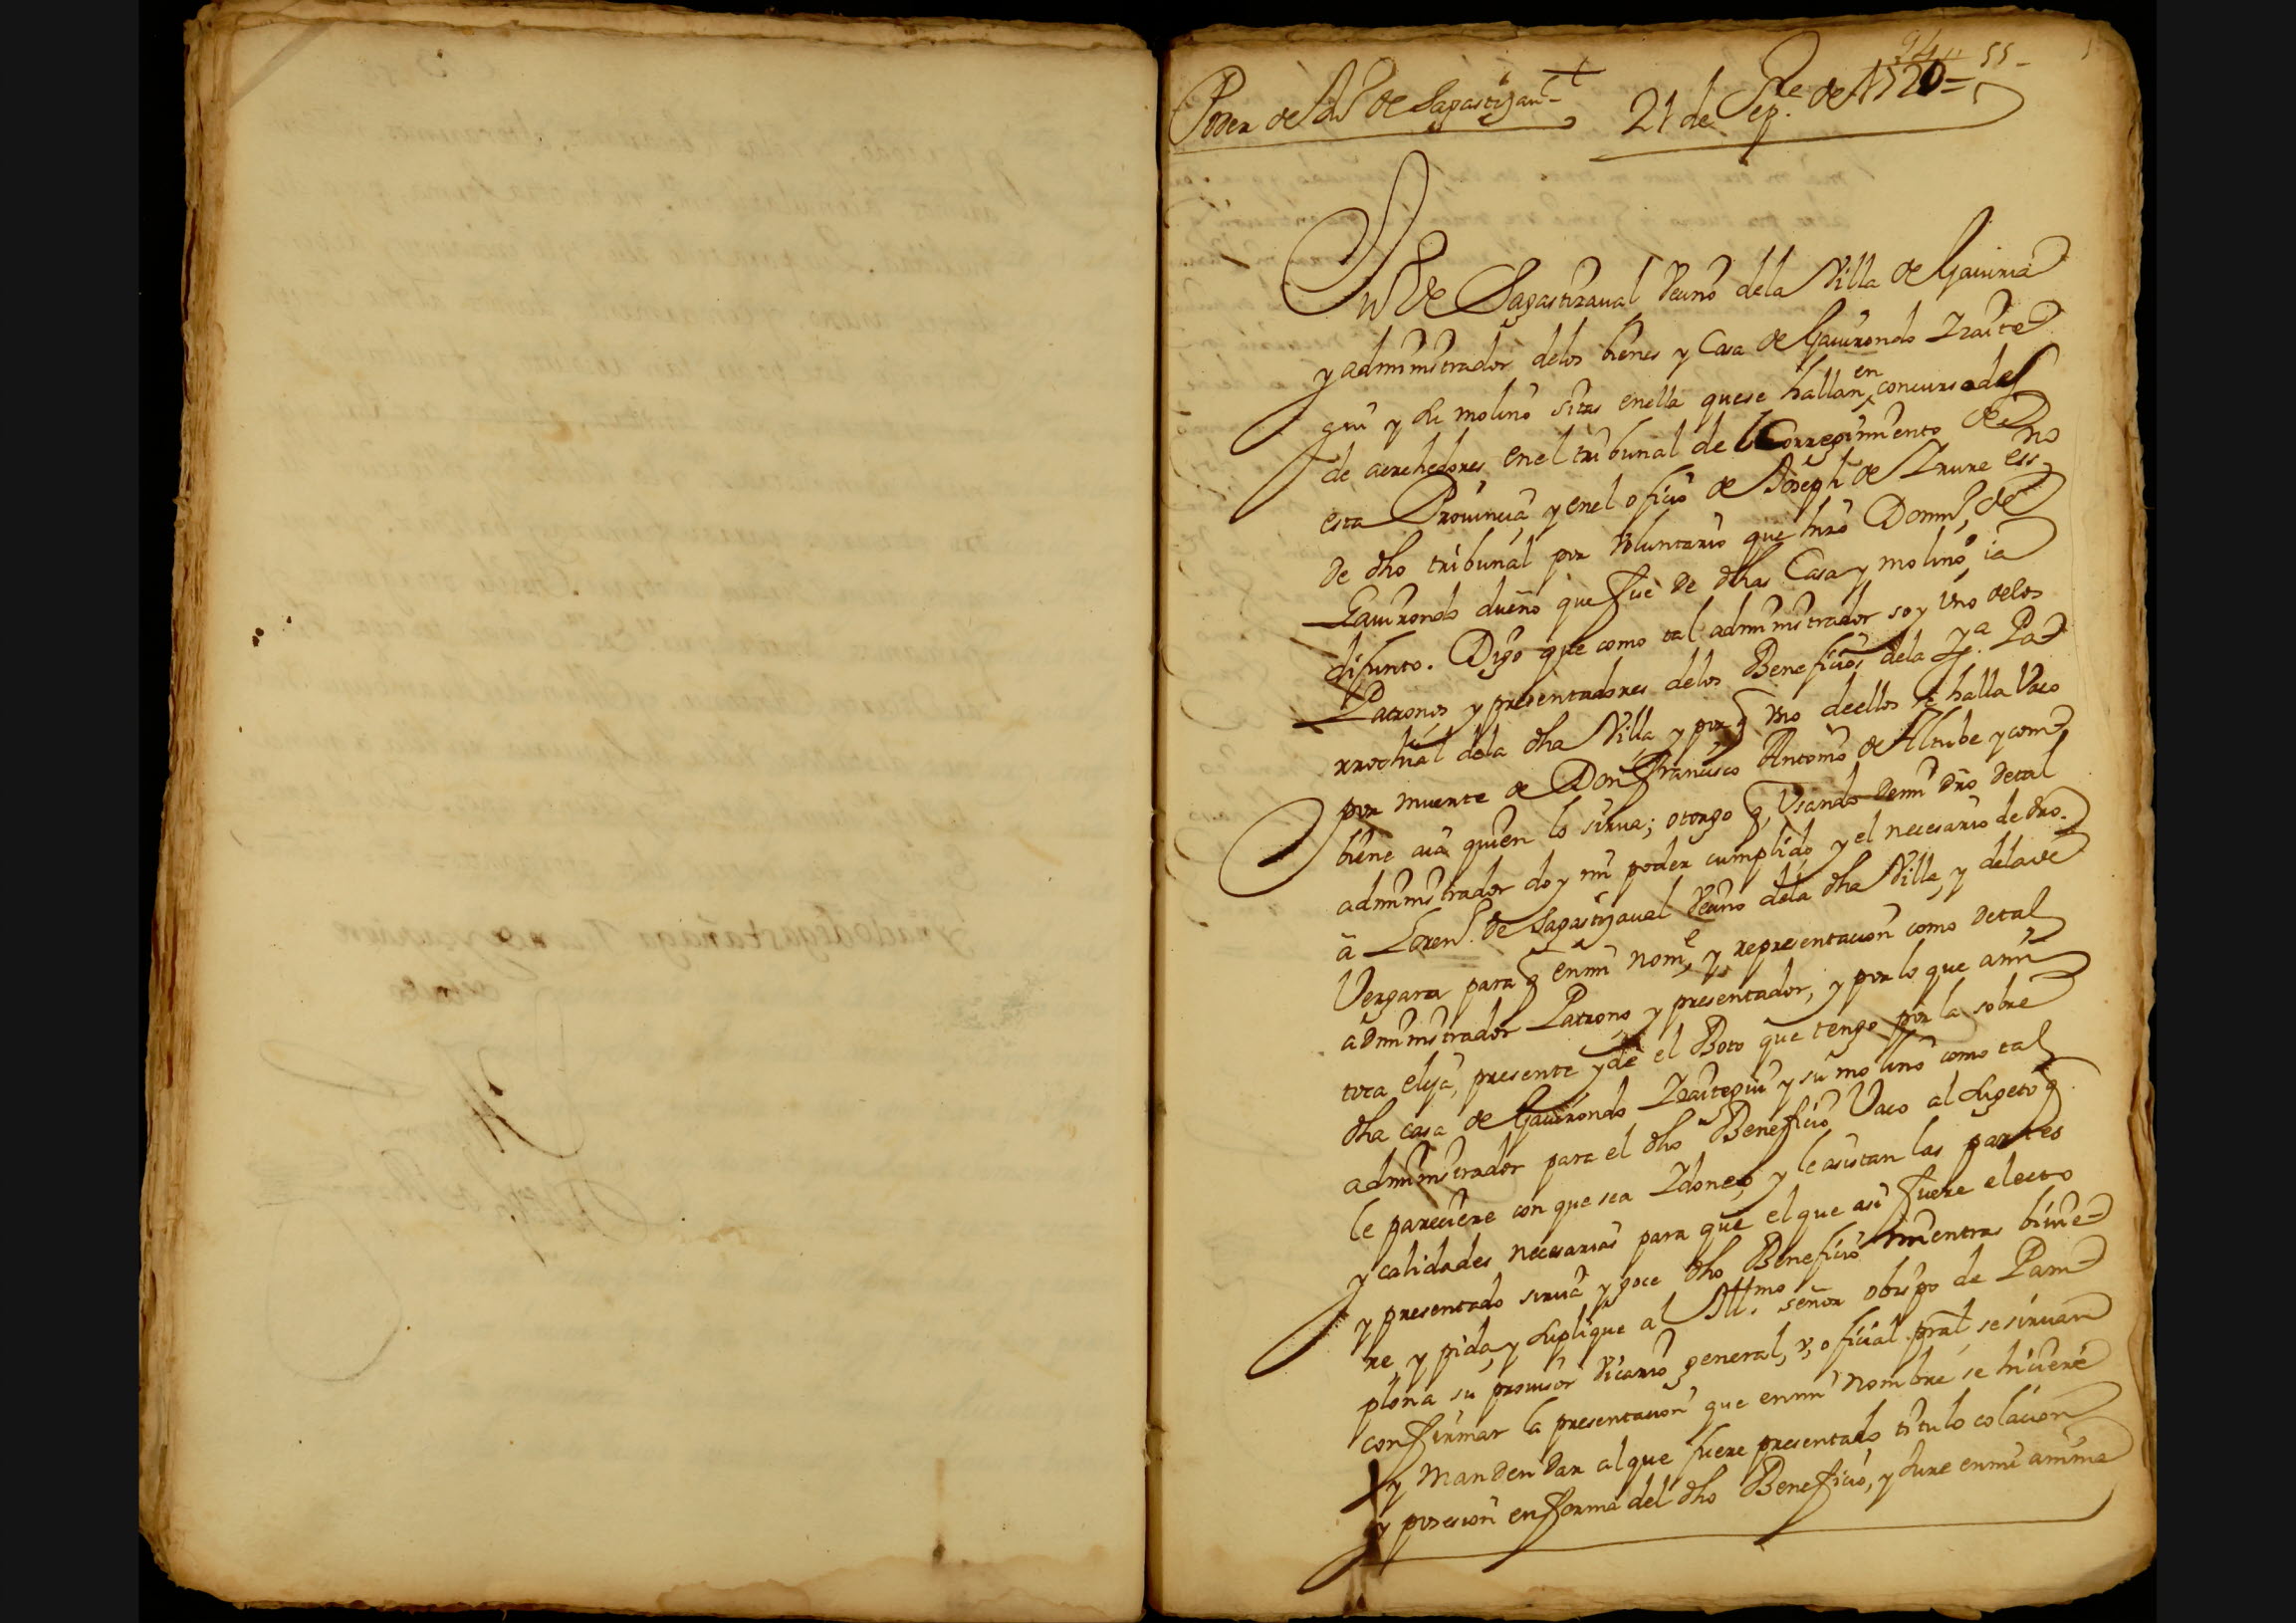 94 55
Poder de Ju.º de Sagastiçau.l 21 de Sep.re de 1720=
Ju.º de Sagastizaual Vecino dela Villa de Gauiria
y administrador delos bienes y Casa de Gauirondo Yraite
gui y su molino sitas enella quese hallan en concurso de
de acrehedores enel tribunal de el Corregimiento de
esta Prouincia y enel oficio de Joseph de Yrure ess.no
de dho tribunal por Voluntario que hizo Domin.º de
Gauirondo dueño que fue de dhas Casa y molino ia
difunto. Digo que como tal administrador soy Uno delos
Patronos y presentadores delos Beneficios dela Yg.ª Pa
rrochial dela dha Villa y por q Uno deellos se halla Vaco
por muerte de Don Francisco Antonio de Altube y com
biene aia quien lo sirua; otorgo q Usando demi dro de tal
administrador doy mi poder cumplido y el necesario de dro.
a Loren.º de Sagastiçaual Vecino dela dha Villa, y delade
Vergara para q enmi nom.e y representacion como de tal
administrador Patrono y presentador, y por lo que ami
toca elija, presente y dé el Boto que tengo por la sobre
dha casa de Gauirondo Yraitegui y su molino como tal
administrador para el dho Beneficio Vaco al sugeto q
le pareciere con que sea Ydoneo, y le asistan las partes
y calidades necesarias para que el que asi fuere electo
y presentado sirua y goce dho Beneficio mientras biuie
re y pida y suplique al Ill.mo señor obispo de Pam
plona su prouisor Vicario general, y oficial pral se siruan
confirmar la presentacion que enmi nombre se hiciere
y manden dar alque fuere presentado titulo colacion
y posesion enforma del dho Beneficio, y Jure enmi anima